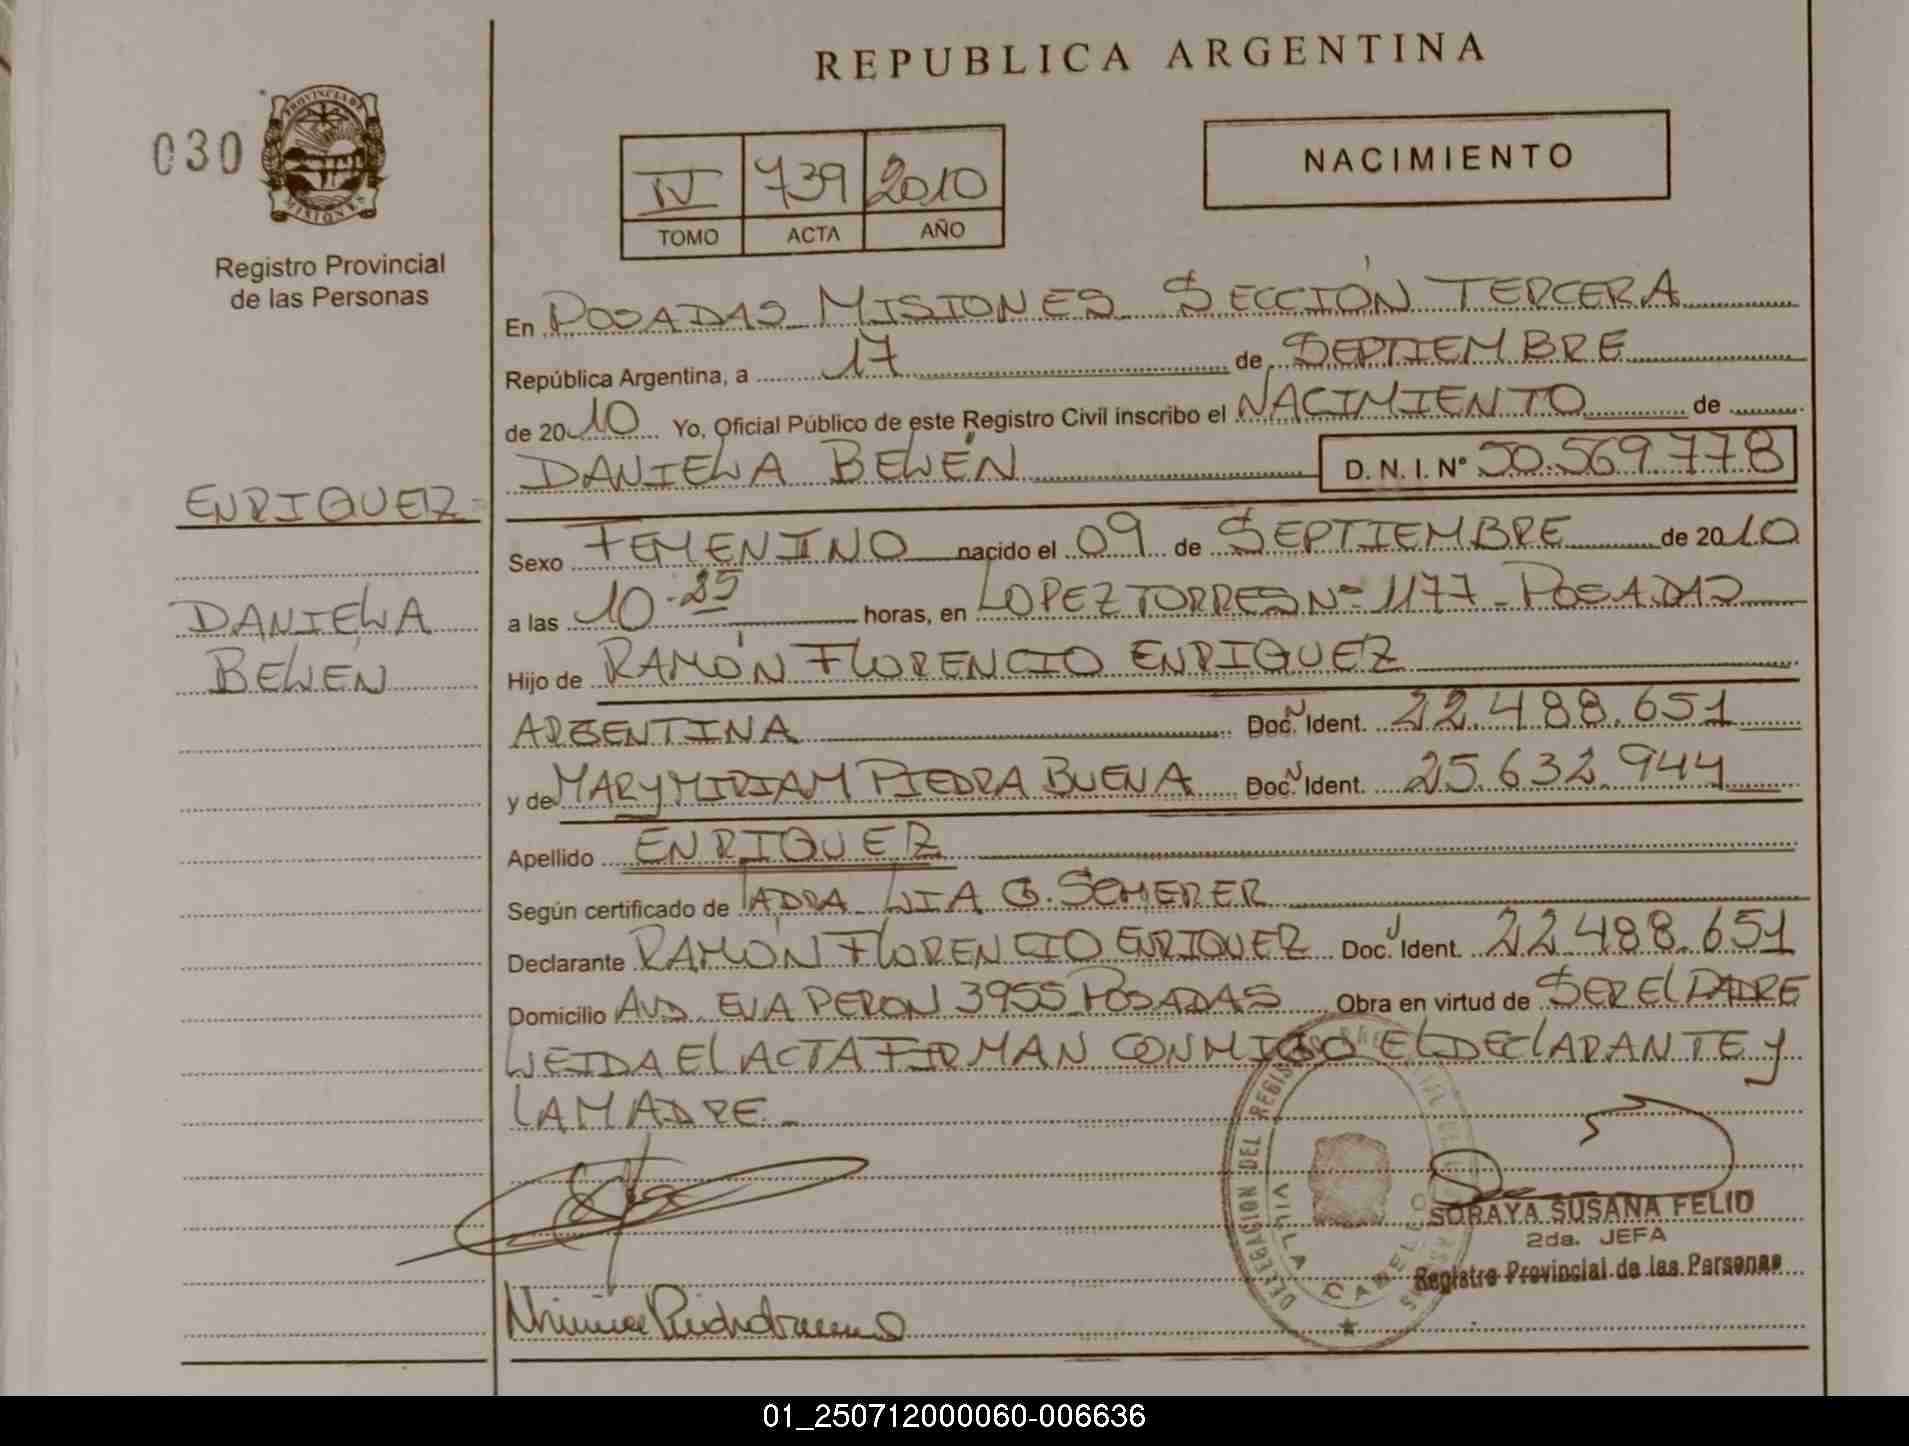 REPUBLICA ARGENTINA
030
PROVINCIA DE
MISIONES
Registro Provincial
de las Personas
NACIMIENTO
IV 739 2010
TOMO ACTA AÑO
En POSADAS MISIONES SECCIÓN TERCERA
República Argentina, a 17 de SEPTIEMBRE
de 2010 Yo, Oficial Público de este Registro Civil inscribo el NACIMIENTO de
DANIELA BELÉN D. N. I. N° 50.569.778
ENRIQUEZ
DANIELA
BELÉN
Sexo FEMENINO nacido el 09 de SEPTIEMBRE de 2010
a las 10-25 horas, en LOPEZ TORRES Nº 1177 - POSADAS
Hijo de RAMÓN FLORENCIO ENRIQUEZ
ARGENTINA Doc. Ident. 22.488.651
y de MARY MIRIAM PIEDRA BUENA Doc. Ident. 25.632.944
Apellido ENRIQUEZ
Según certificado de LIA G. SCHERER
Declarante RAMÓN FLORENCIO ENRIQUEZ Doc. Ident. 22.488.651
Domicilio AVD. EVA PERON 3955 POSADAS Obra en virtud de SER EL PADRE
LEIDA EL ACTA FIRMAN CONMIGO EL DECLARANTE Y
LA MADRE.-
DELEGACION DEL REGISTRO
VILLA CABELLO
SORAYA SUSANA FELIO
2da. JEFA
Registro Provincial de las Personas
01_250712000060-006636